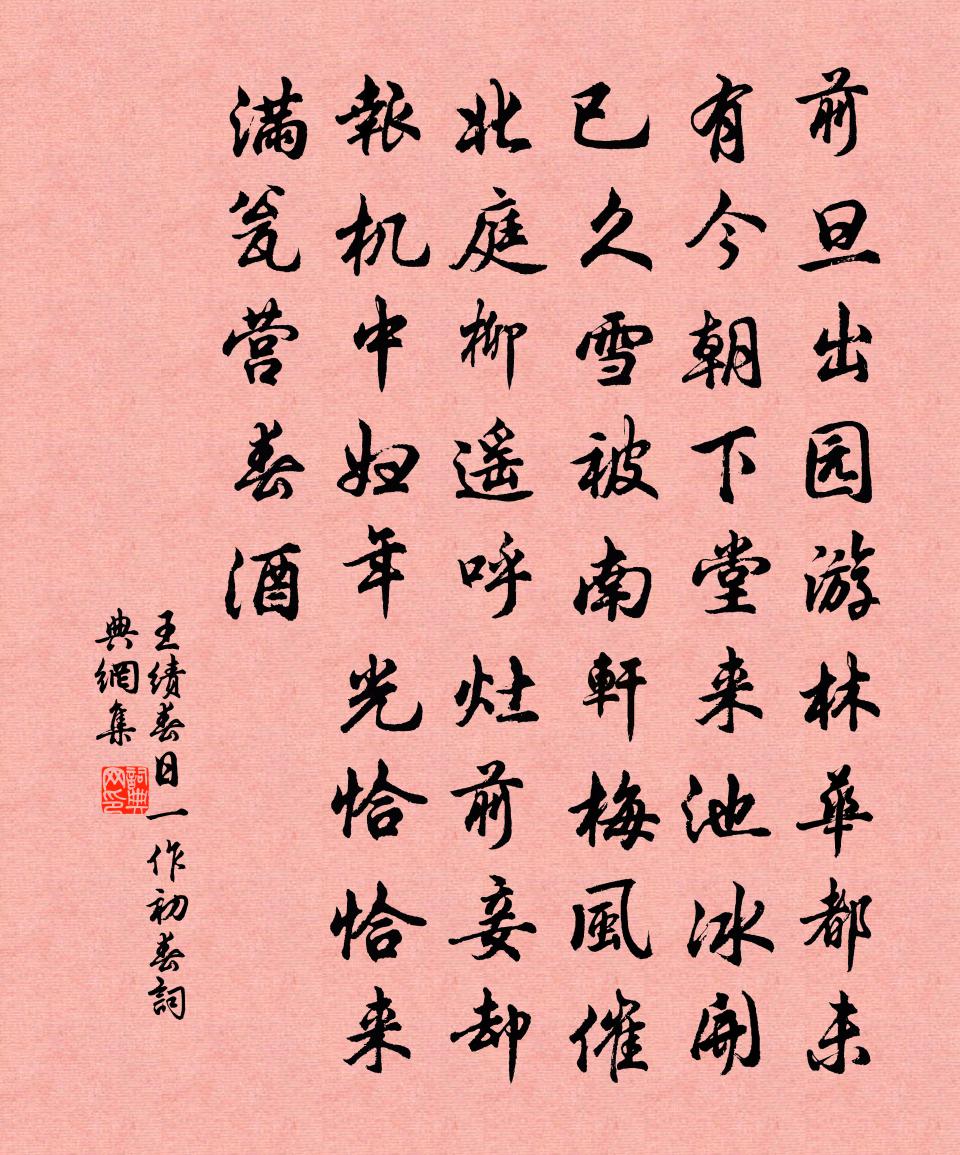 前旦出园游林华都未
有今朝下堂来池冰開
已久雪被南軒梅風催
北庭柳遥呼灶前妾却
報机中妇年光恰恰来
满瓮营春酒
王绩春日一作初春詞
典網集
詞典网印